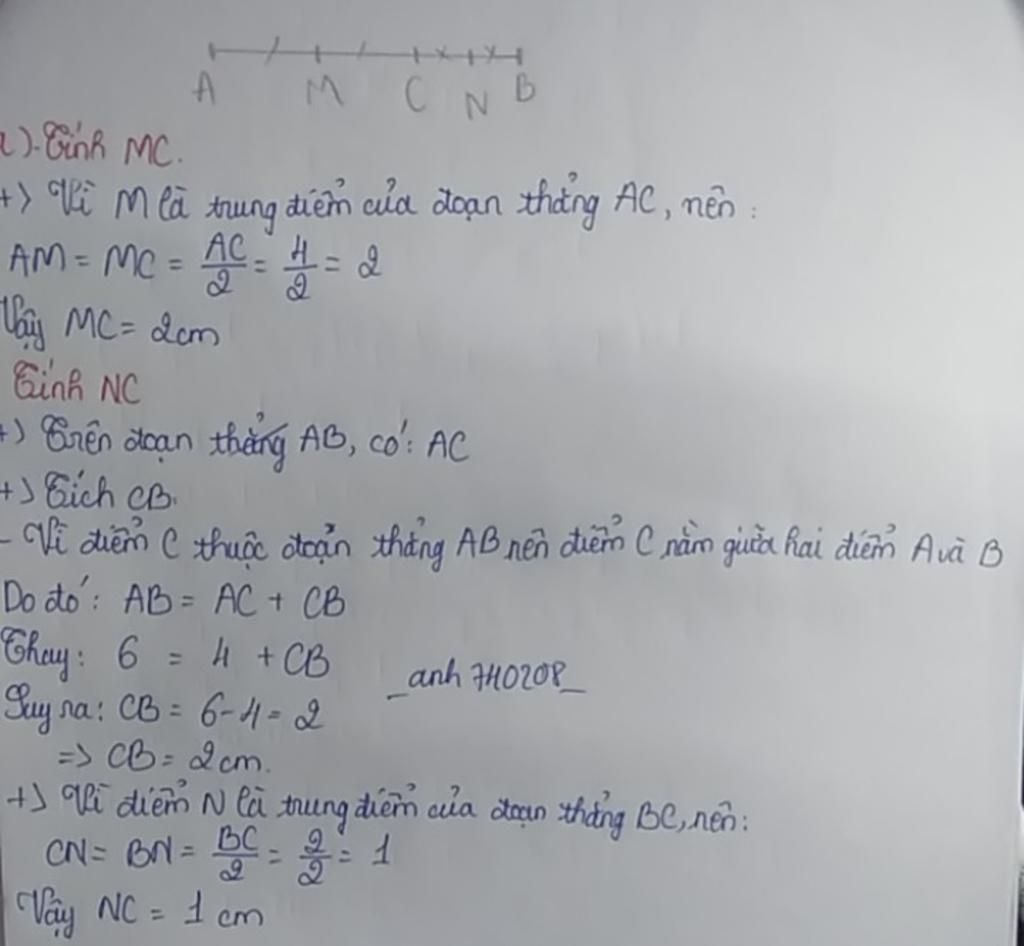 A M C N B
a). Tính MC.
+) Vì M là trung điểm của đoạn thẳng AC, nên:
AM = MC = AC/2 = 4/2 = 2
Vậy MC = 2cm
Tính NC
+) Trên đoạn thẳng AB, có: AC
+) Tích CB.
- Vì điểm C thuộc đoạn thẳng AB nên điểm C nằm giữa hai điểm A và B
Do đó: AB = AC + CB
Thay: 6 = 4 + CB
_anh 740208_
Suy ra: CB = 6-4 = 2
=> CB = 2cm.
+) Vì điểm N là trung điểm của đoạn thẳng BC, nên:
CN = BN = BC/2 = 2/2 = 1
Vậy NC = 1 cm